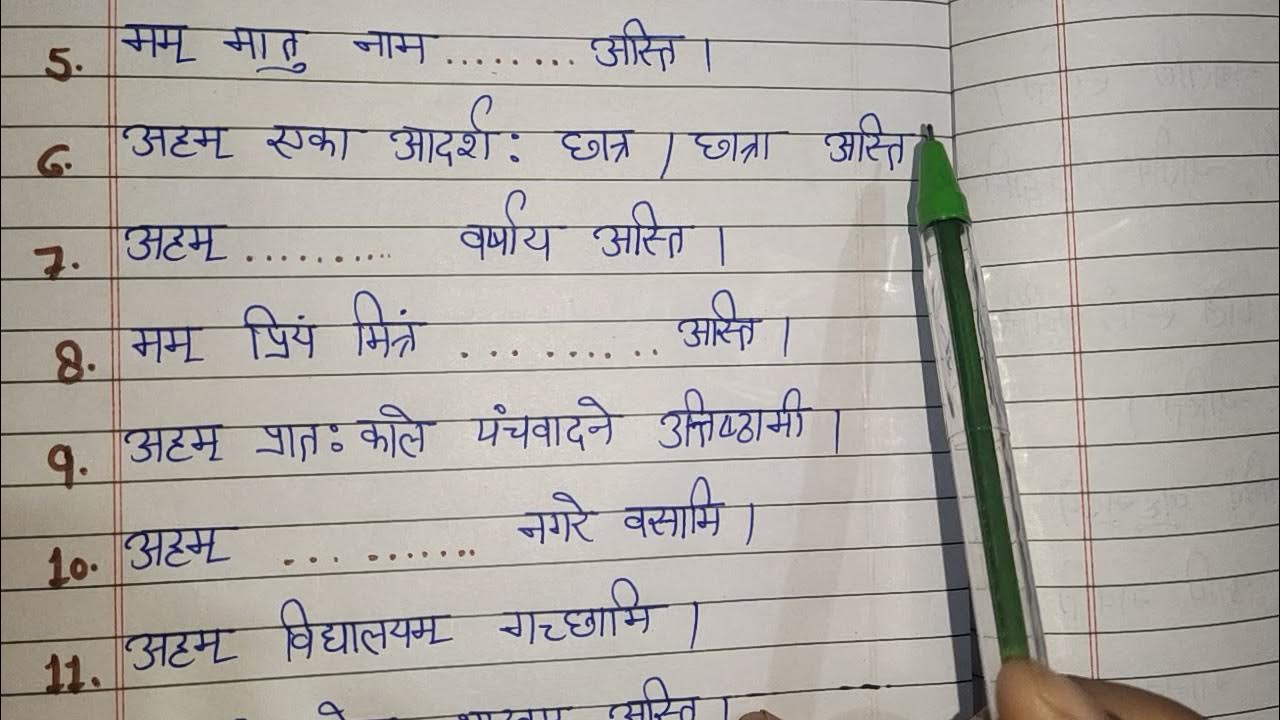 5. मम् मातु नाम ........ अस्ति ।
6. अहम् एका आदर्श: छात्र / छात्रा अस्ति
7. अहम् .......... वर्षाय अस्ति ।
8. मम् प्रियं मित्रं ......... अस्ति ।
9. अहम् प्रात: काले पंचवादने उत्तिष्ठामी ।
10. अहम् .......... नगरे वसामि ।
11. अहम् विद्यालयम् गच्छामि ।
अस्ति ।